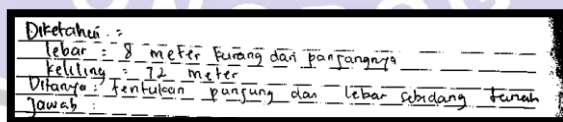 Diketahui :
lebar : 8 meter kurang dari panjangnya
keliling : 72 meter
Ditanya : Tentukan panjang dan lebar sebidang tanah
Jawab :